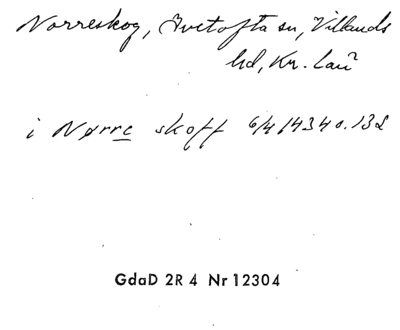 Norreskog, Ivetofta sn, Villands
hd, Kr. län
i Nørre skoff 6/4 1434 o. 132
GdaD 2R 4 Nr 12304